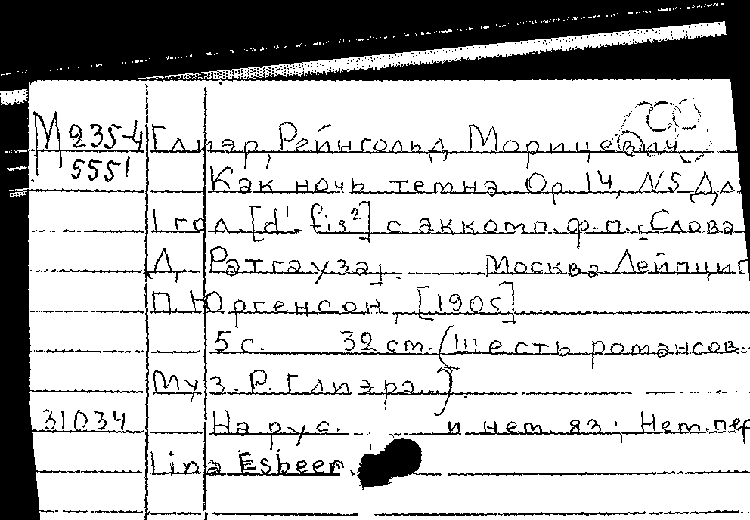 М 235-4 Глиэр, Рейнгольд Морицевич
5551 Как ночь темна Op. 14, N5 Дл
1 гол. [d' fis²] с аккомп. ф.-п. [Слова
Д. Ратгауза]. Москва Лейпциг
П. Юргенсон, [1905]
5 с. 32 cm. (Шесть романсов.
Муз. Р. Глиэра.)
31034 На рус. и нем. яз; Нем. пер
Lina Esbeer.